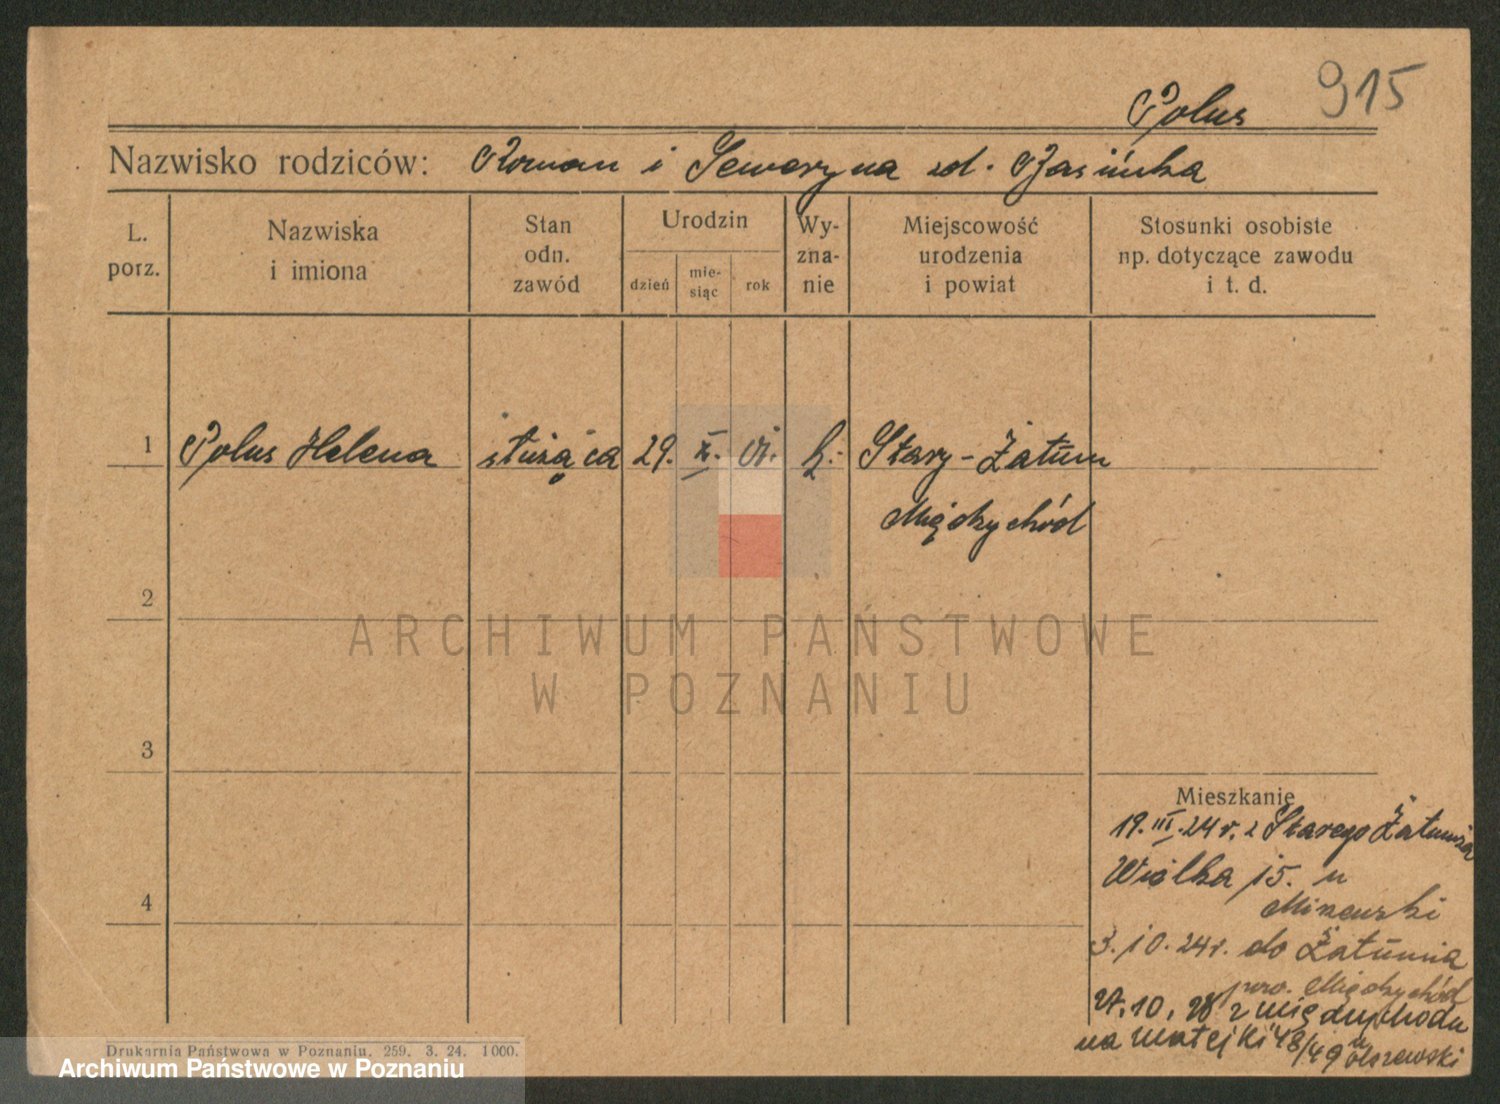 915
Polus
Nazwisko rodziców: Roman i Seweryna zd.
L. porz.
Nazwiska i imiona
Stan odn. zawód
Urodzin
dzień
mie-siąc
rok
Wy-zna-nie
Miejscowość urodzenia i powiat
Stosunki osobiste np. dotyczące zawodu i t. d.
1 Polus Helena służąca 29. X. k. Stary-Zatum
Międzychód
2
ARCHIWUM PAŃSTWOWE
W POZNANIU
3
Mieszkanie
19. III. 24 r. z Starego
Wielka 15. u
4
3. 10. 24 r. do
pow. Międzychód
27. 10. z Międzychodu
na Matejki 48/49 u Olszewski
Drukarnia Państwowa w Poznaniu. 259. 3. 24. 1000.
Archiwum Państwowe w Poznaniu